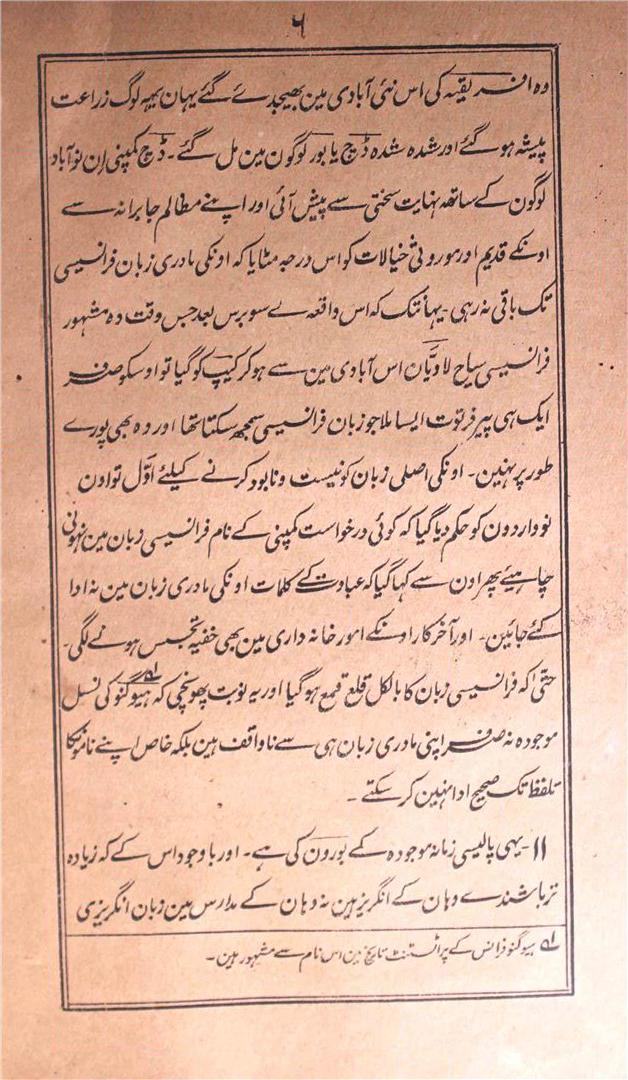 ۶
وہ افریقہ کی اس نئی آبادی مین بھیجدئے گئے یہان یہہ لوگ زراعت
پیشہ ہو گئے اور شدہ شدہ ڈچ یا بور لوگون مین مل گئے۔ ڈچ کمپنی ان نوآباد
لوگون کے ساتھ نہایت سختی سے پیش آئی اور اپنے مظالم جابرانہ سے
اونکے قدیم اور موروثی خیالات کو اس درجہ مٹایا کہ اونکی مادری زبان فرانسیسی
تک باقی نہ رہی۔ یہانتک کہ اس واقعہ سے سو برس بعد جس وقت وہ مشہور
فرانسیسی سیاح لاویّان اس آبادی مین سے ہو کر کیپ کو گیا تو اوسکو صرف
ایک ہی پیر فرتوت ایسا ملا جو زبان فرانسیسی سمجھ سکتا تھا اور وہ بھی پورے
طور پر نہین۔ اونکی اصلی زبان کو نیست و نابود کرنے کیلئے اوّل تو اون
نوواردون کو حکم دیا گیا کہ کوئی درخواست کمپنی کے نام فرانسیسی زبان مین نہونی
چاہیئے پھر اون سے کہا گیا کہ عبادت کے کلمات اونکی مادری زبان مین نہ ادا
کئے جائین۔ اور آخر کار اونکے امور خانہ داری مین بھی خفیہ تجسس ہونے لگی۔
حتیٰ کہ فرانسیسی زبان کا بالکل قلع قمع ہو گیا اور یہ نوبت پھونچی کہ ہیوگنو کی نسل
موجودہ نہ صرف اپنی مادری زبان ہی سے ناواقف ہین بلکہ خاص اپنے نامونکا
تلفظ تک صحیح ادا نہین کر سکتے۔
۱۱۔ یہی پالیسی زمانہ موجودہ کے بورون کی ہے۔ اور باوجود اس کے کہ زیادہ
تر باشندے وہان کے انگریز ہین نہ وہان کے مدارس مین زبان انگریزی
ہیوگنو فرانس کے پراٹسٹنٹ تاریخ مین اس نام سے مشہور ہین۔